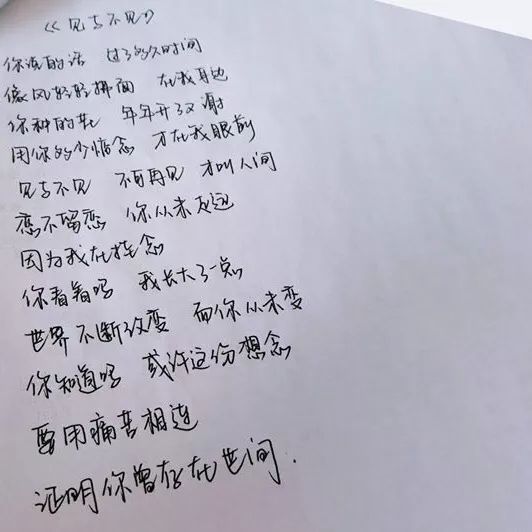 《见与不见》
你说的话 过了多久时间
像风轻轻拂面 在我耳边
你种的花 年年开了又谢
用你多少惦念 才在我眼前
见与不见 不再见 才叫人间
恋不留恋 你从未走远
因为我在挂念
你看着吗 我长大了一点
世界不断改变 而你从未变
你知道吗 或许这份想念
要用痛苦相连
证明你曾存在世间.